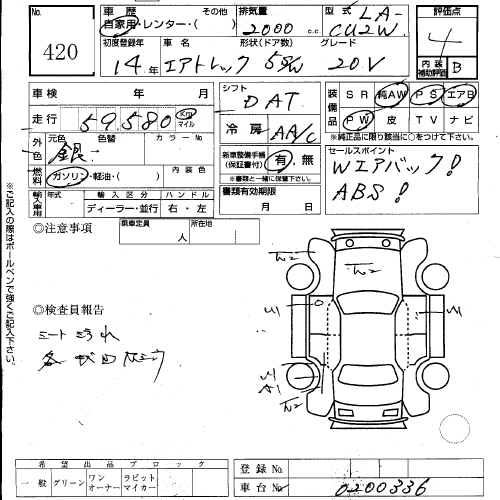 No.
420
車 歴
自家用・レンター・( )
その他
排気量
2000 c.c
型 式
LA-
CU2W
評価点
4
内 装
補助評価
B
初度登録年
14年
車 名
エアトレック
形状(ドア数)
5S/W
グレード
20V
車 検 年 月
走 行
59,580
Km
マイル
シフト
DAT
冷 房
AA/C
装備品
SR
純AW
PS
エアB
PW
皮
TV
ナビ
※純正品に限り該当に○をつけて下さい。
外色
元色
銀
色替
カラーNo
内装色
燃料
ガソリン・軽油・( )
輸入車用
輸入区分
ディーラー・並行
ハンドル
右・左
新車整備手帳
(保証書付)
有, 無
※書類と一緒に保管下さい。
書類有効期限
月 日
セールスポイント
Wエアバック!
ABS!
◎注意事項
乗車定員
人
所在地
◎検査員報告
シート
各
※ご記入の際はボールペンで強くご記入下さい。
希 望 出 品 ブ ロ ッ ク
一 般
グリーン
ワンオーナー
ラビットマイカー
登 録 No.
車 台 No.
0200336